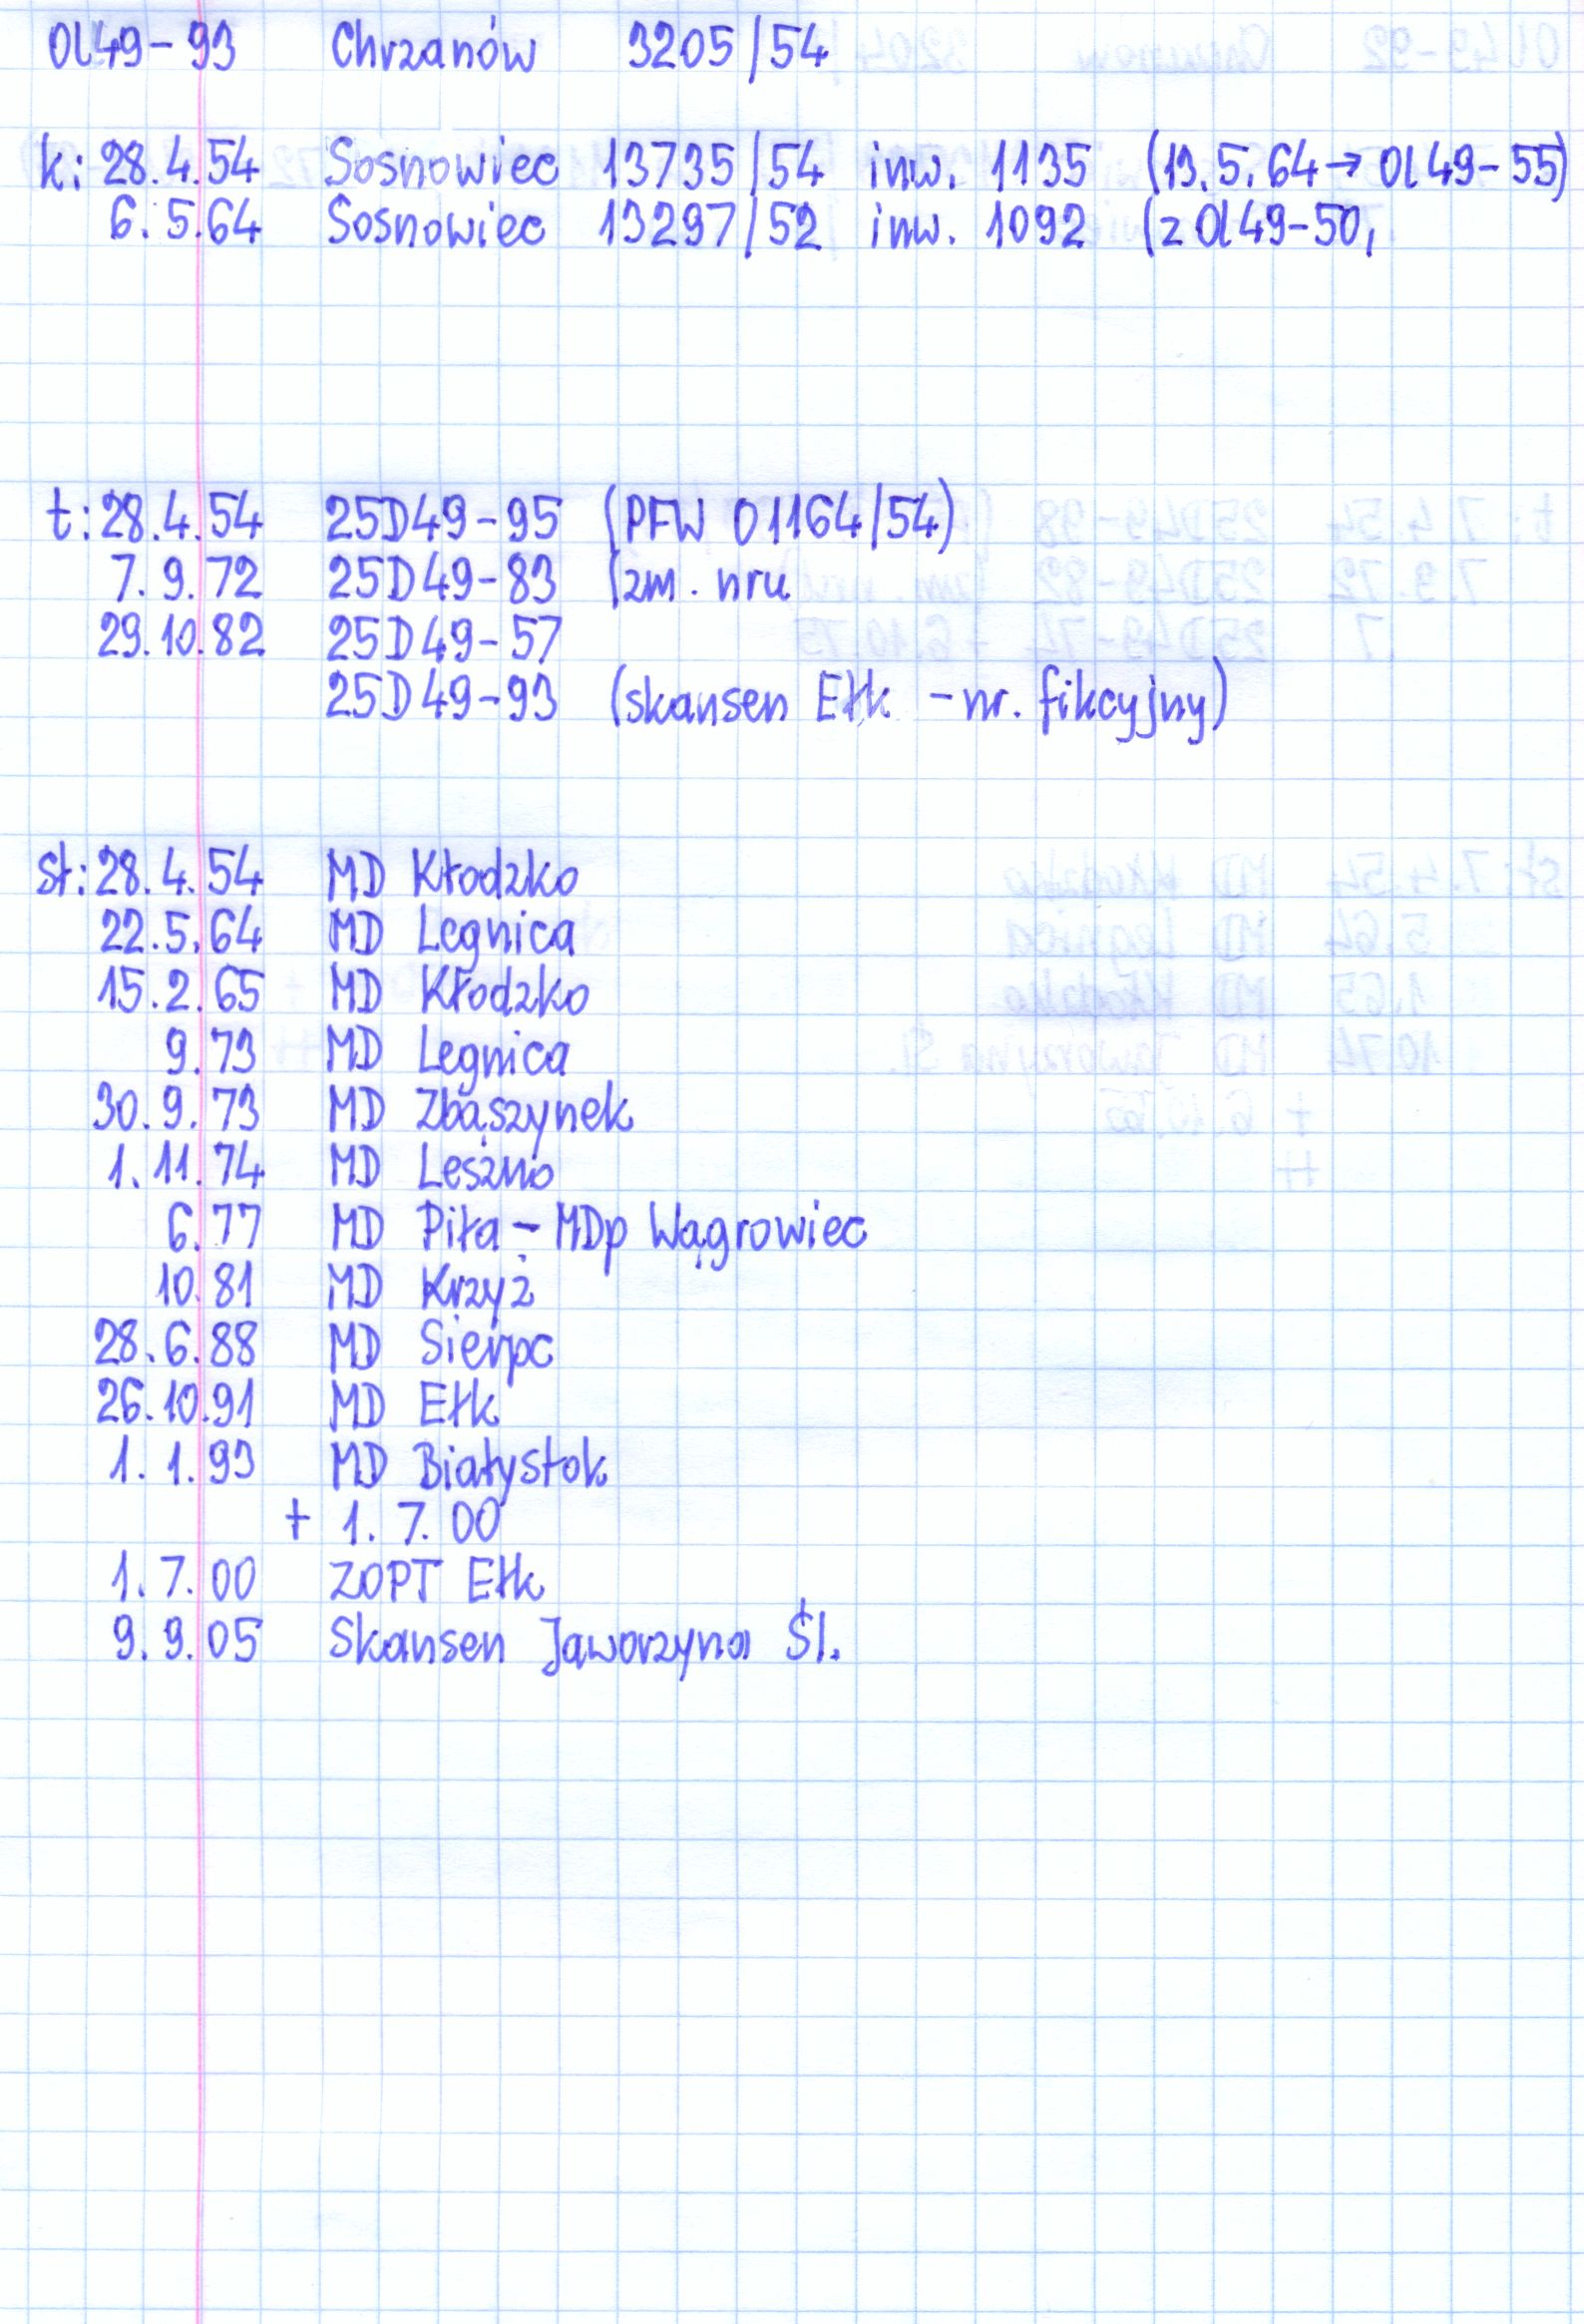 Ol49-93 Chrzanów 3205/54
k: 28.4.54 Sosnowiec 13735/54 inw. 1135 (13.5.64→ Ol49-55)
6.5.64 Sosnowiec 13297/52 inw. 1092 (z Ol49-50,
t: 28.4.54 25D49-95 (PFW 01164/54)
7.9.72 25D49-83 (zm. nru
29.10.82 25D49-57
25D49-93 (skansen Ełk - nr. fikcyjny)
st: 28.4.54 MD Kłodzko
22.5.64 MD Legnica
15.2.65 MD Kłodzko
9.73 MD Legnica
30.9.73 MD Zbąszynek
1.11.74 MD Leszno
6.77 MD Piła - MDp Wągrowiec
10.81 MD Krzyż
28.6.88 MD Sierpc
26.10.91 MD Ełk
1.1.93 MD Białystok
+ 1.7.00
1.7.00 ZOPT Ełk
9.9.05 Skansen Jaworzyna Śl.